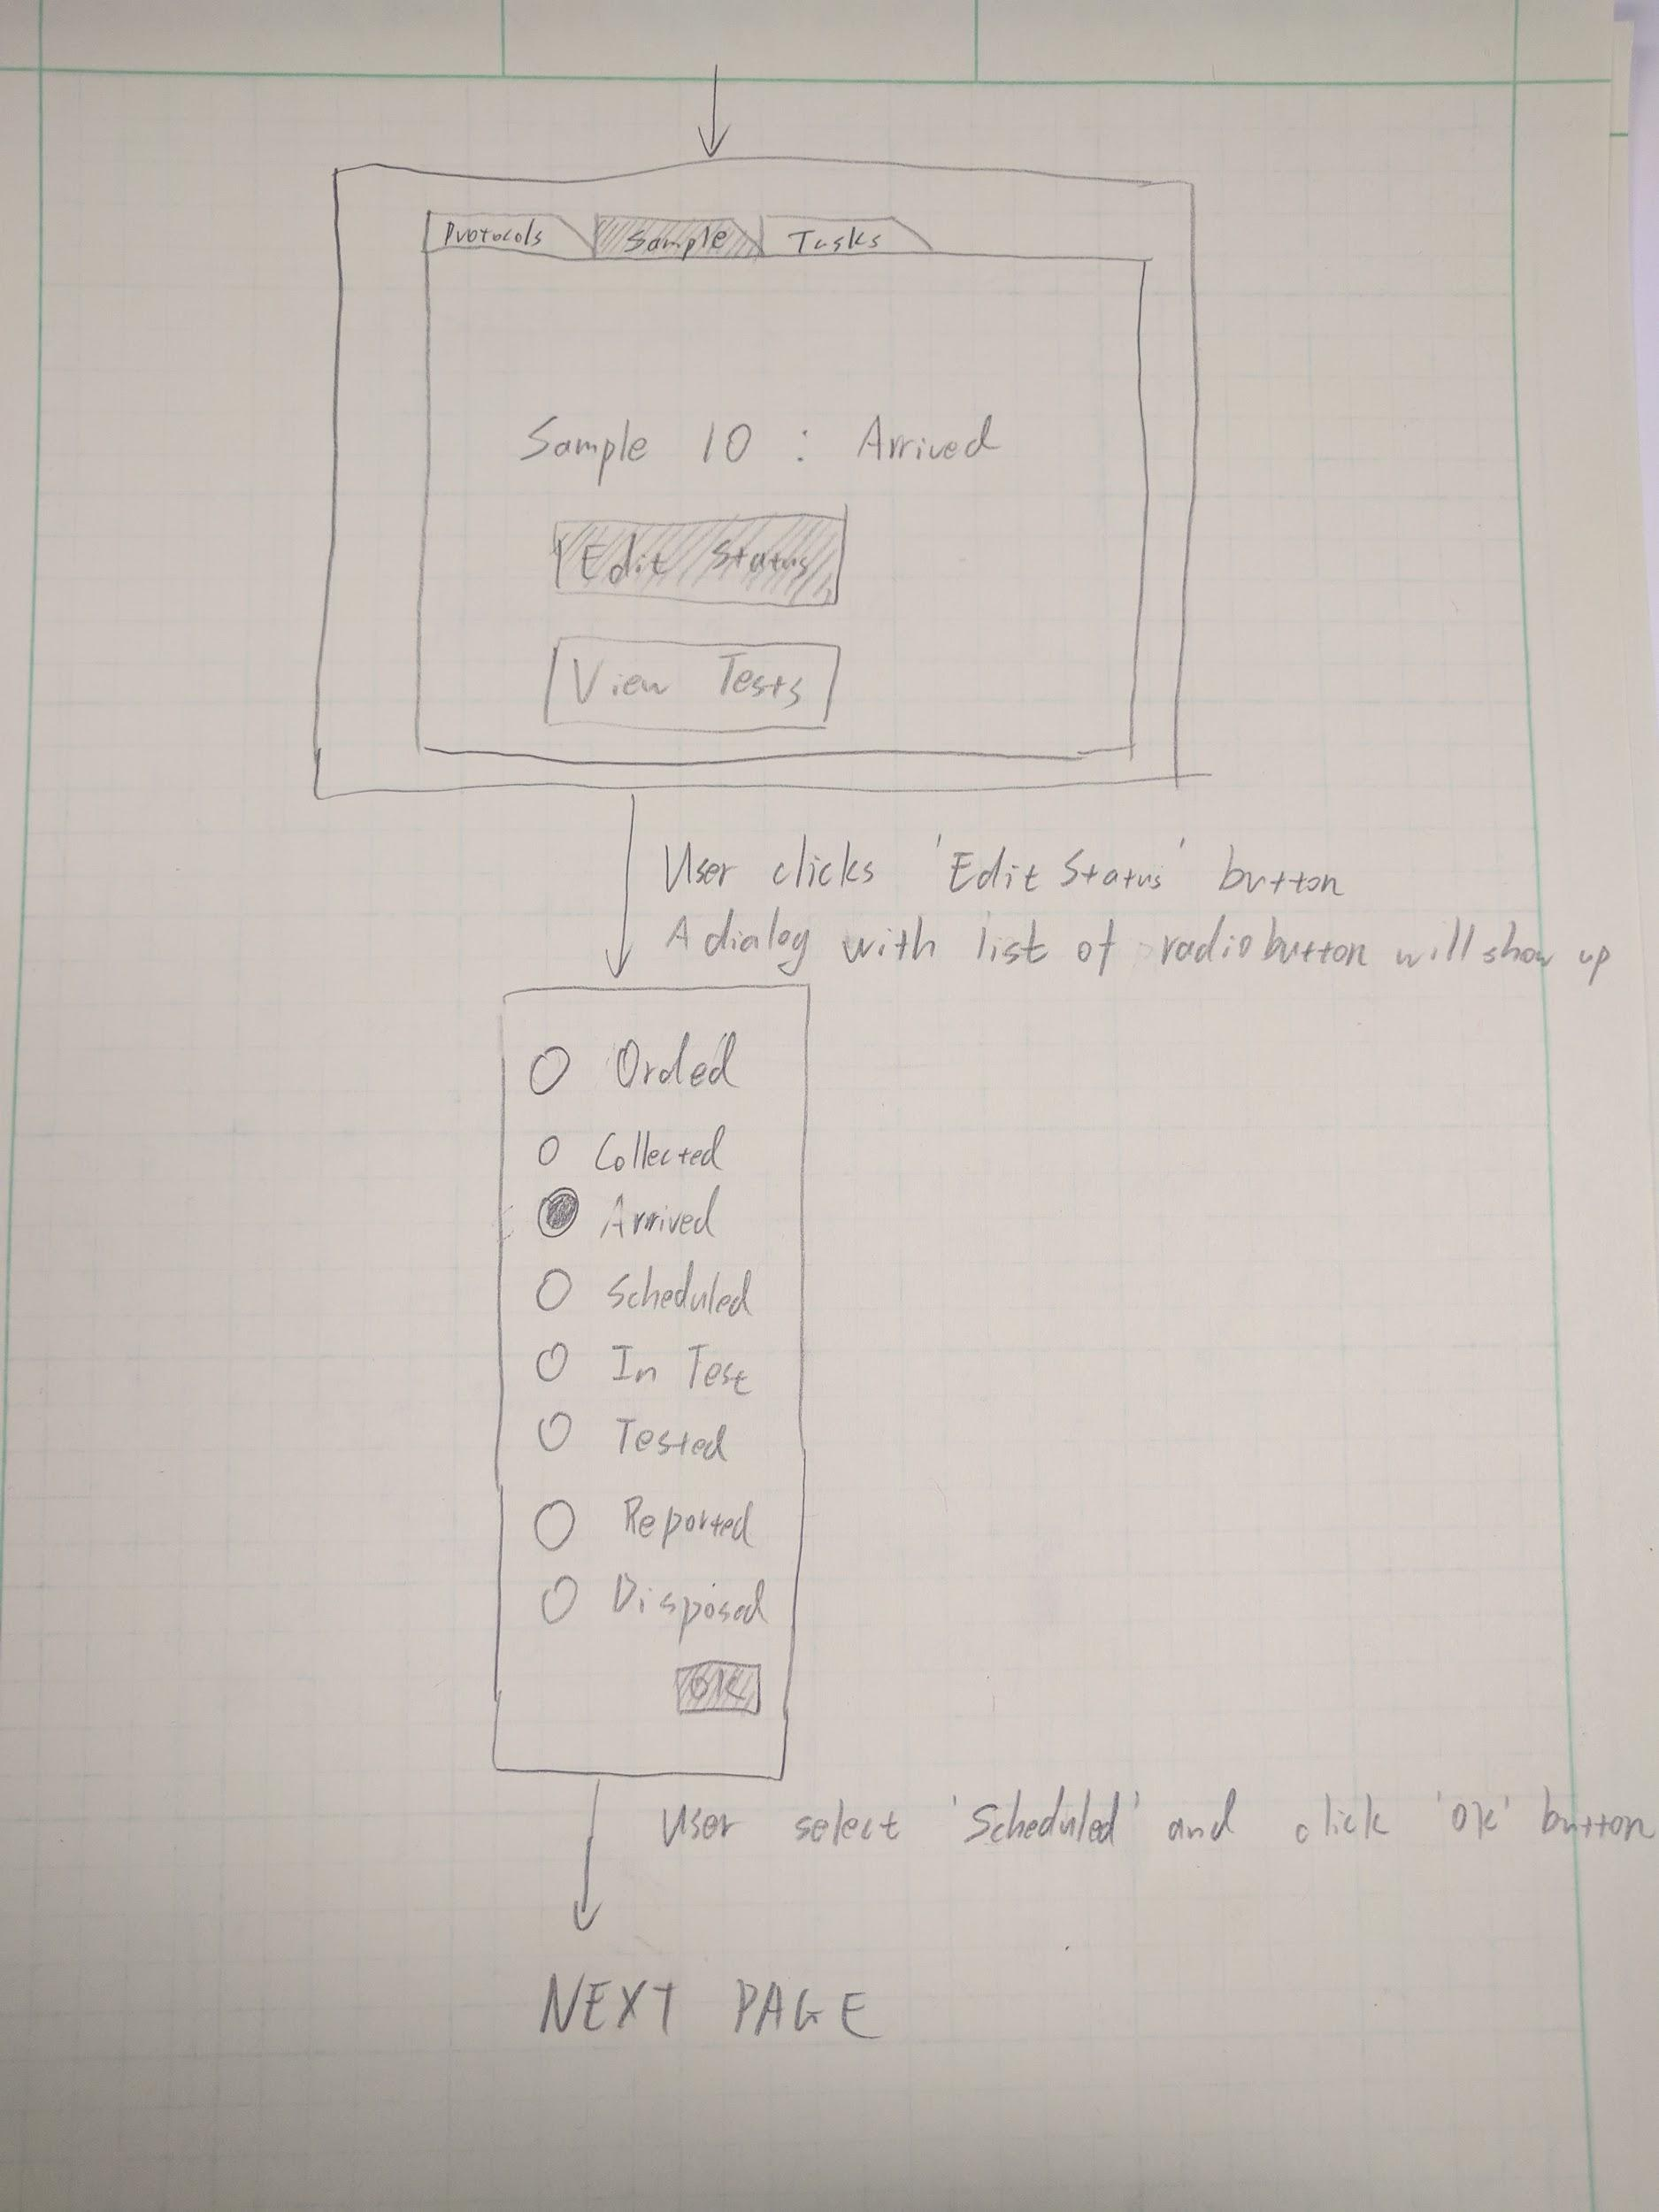 Protocols Sample Tasks
Sample 10 : Arrived
Edit Status
View Tests
User clicks 'Edit Status' button
A dialog with list of radio button will show up
Orded
Collected
Arrived
Scheduled
In Test
Tested
Reported
Disposed
OK
User select 'Scheduled' and click 'OK' button
NEXT PAGE